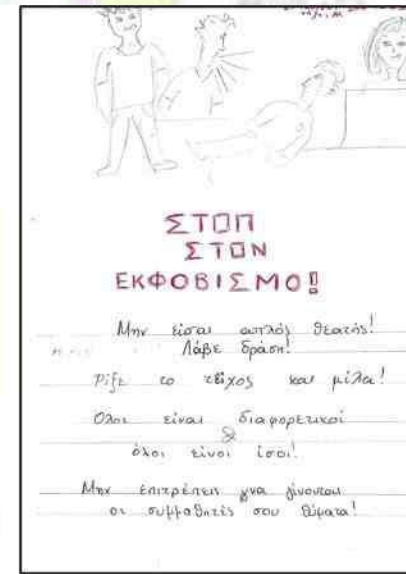 ΣΤΟΠ
ΣΤΟΝ
ΕΚΦΟΒΙΣΜΟ!
Μην είσαι απλός θεατής!
Λάβε δράση!
Ρίξε το τείχος και μίλα!
Όλοι είναι διαφορετικοί
&
όλοι είναι ίσοι!
Μην επιτρέπεις γνα γίνονται
οι συμμαθητές σου θύματα!